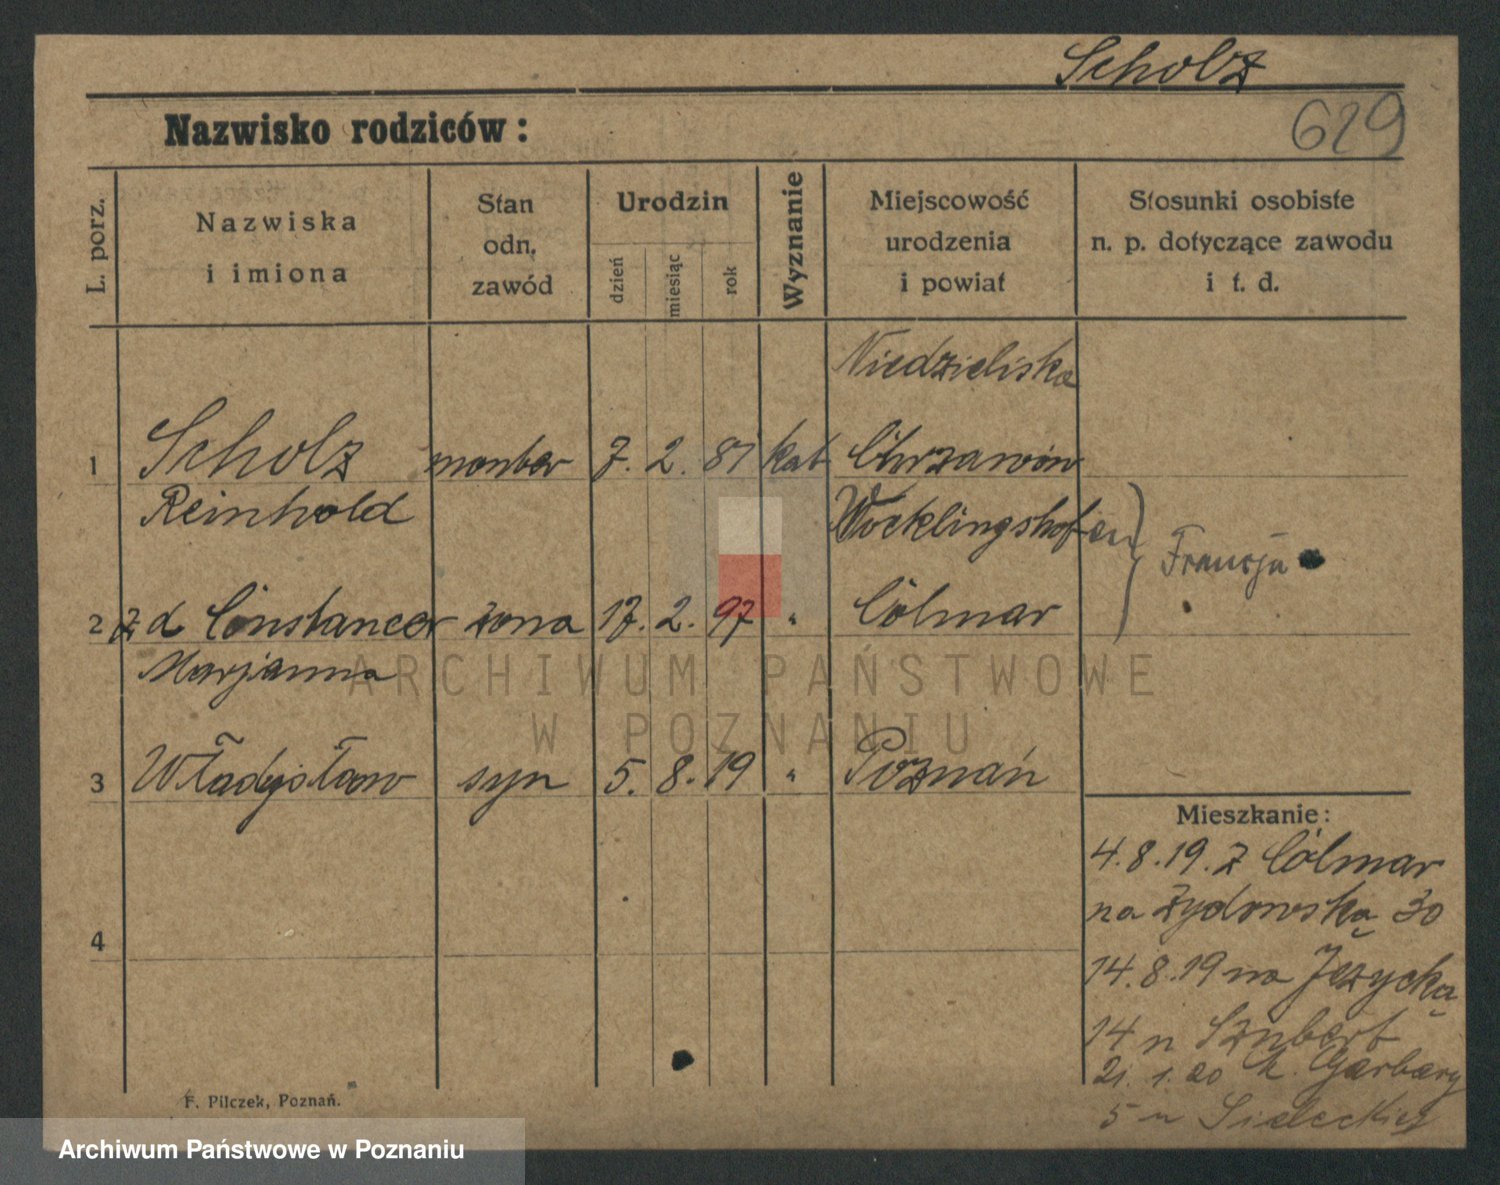 Scholz
629
Nazwisko rodziców:
L. porz.
Nazwiska
i imiona
Stan
odn.
zawód
Urodzin
dzień
miesiąc
rok
Wyznanie
Miejscowość
urodzenia
i powiat
Stosunki osobiste
n. p. dotyczące zawodu
i t. d.
Niedzieliska
1 Scholz monter 7. 2. 87 kat Chrzanów
Reinhold Wocklingshofen
Francja
2 z d Constancer żona 17. 2. 97 " Colmar
Marjanna
3 Władysław syn 5. 8. 19 " Poznań
Mieszkanie:
4.8.19. z Colmar
na Żydowską 30
4
14.8.19 na Jeżycką
14 u Sznbert
21. 1. 20 Garbary
5 u Sieleckiej
F. Pilczek, Poznań.
ARCHIWUM PAŃSTWOWE
W POZNANIU
Archiwum Państwowe w Poznaniu